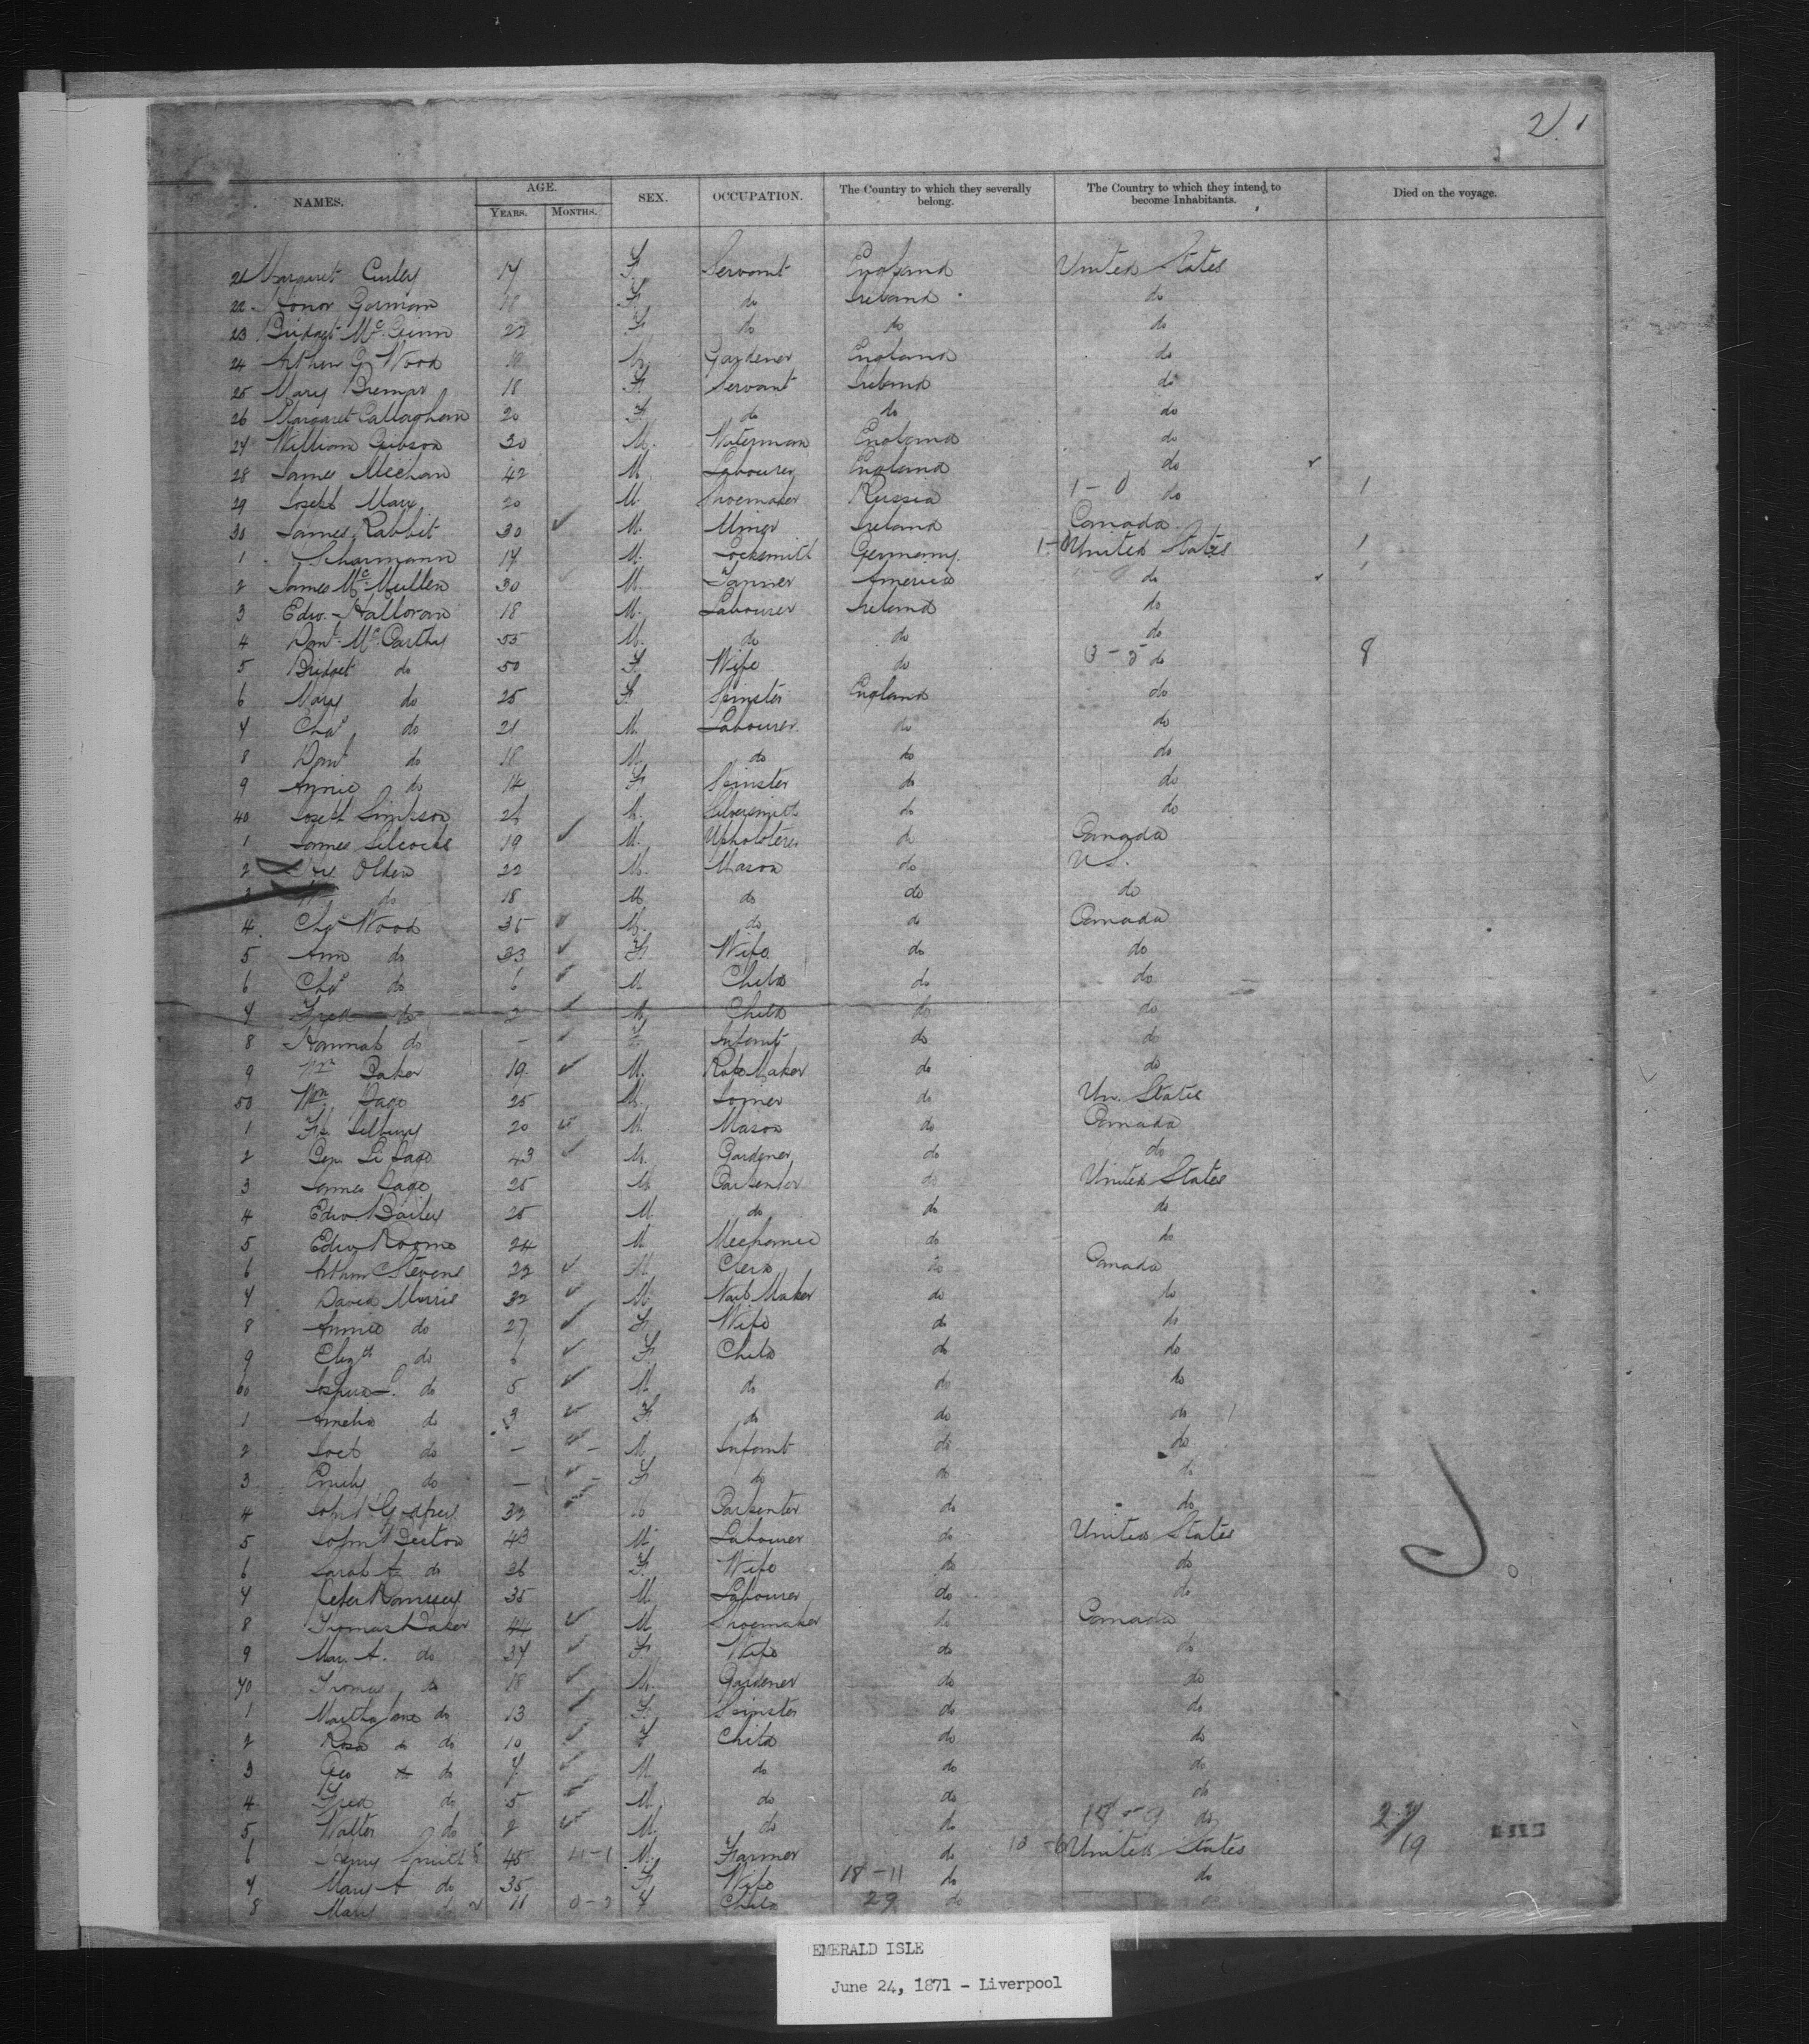 2 1
NAMES. AGE. SEX. OCCUPATION. The Country to which they severally belong. The Country to which they intend to become Inhabitants. Died on the voyage.
YEARS. MONTHS.
21 Margaret Curley 17 F. Servant England United States
22 Honor Gorman 18 F. do Ireland do
23 Bridget McGinn 22 F do do do
24 Arthur G Wood M. Gardener England do
25 Mary 18 F. Servant Ireland do
26 Margaret Callaghan 20 F. do do do
27 William Gibson 30 M. Waterman England do
28 James Meehan 42 M. Labourer England do
29 Joseph Marx 20 M. Shoemaker Russia 1-0 do 1
30 James Rabbit 30 M. Miner Ireland Canada
1 Scharmann 17 M. Locksmith Germany 1-0 United States 1
2 James McMullen 30 M. Tanner America do
3 Edw. Halloran 18 M. Labourer Ireland do
4 Danl. McCarthy 55 M. do do do
5 Bridget do 50 F. Wife do 3-5 do 8
6 Mary do 25 F. Spinster England do
7 Chas do 21 M. Labourer do do
8 Danl do 18 M. do do do
9 Annie do 14 F. Spinster do do
40 Joseph Simpson M. Silversmith do do
1 James Silcocks 19 M. Upholsterer do Canada
2 Olden 22 M. Mason do U S.
3 Wm do 18 M do do do
4 Chas Wood 35 M. do do Canada
5 Ann do 33 F. Wife do do
6 Chas do 6 M Child do do
7 Fred do 2 M. Child do do
8 Hannah do - F. Infant do do
9 Wm Baker 19 M. Rope Maker do do
50 Wm. Page 25 M. Joiner do Un. States
1 20 M. Mason do Canada
2 43 M. Gardener do do
3 James Page 25 M Carpenter do United States
4 Edw Bailey 25 M do do do
5 Edw Rooms 24 M Mechanic do do
6 Arthur Stevens 22 M Clerk do Canada
7 David Morris 32 M. Nail Maker do do
8 Annie do 27 F. Wife do do
9 Elizth do 6 F. Child do do
60 Joshua S. do 5 M do do do
1 Amelia do 3 F. do do do
2 do - - M Infant do do
3 Emily do - F do do do
4 John Godfrey 32 Carpenter do do
5 John 43 M. Labourer do United States
6 Sarah A do 36 F. Wife do do
7 Peter Ramsey 35 M. Labourer do do
8 Thomas Baker 44 M Shoemaker do Canada
9 Mary A. do 37 F. Wife do do
70 Thomas do 18 M. Gardener do do
1 Martha Jane do 13 F. Spinster do do
2 Rosa do do 10 F Child do do
3 Geo do 7 M. do do do
4 Fred do 5 M. do do do
5 Walter do 2 M. do do 18-9 do 27
6 Henry Smith 45 M. Farmer do 10-6 United States 19
7 Mary A do 35 F. Wife 18-11 do do
8 Mary do 11 F Child 29 do
EMERALD ISLE
June 24, 1871 - Liverpool